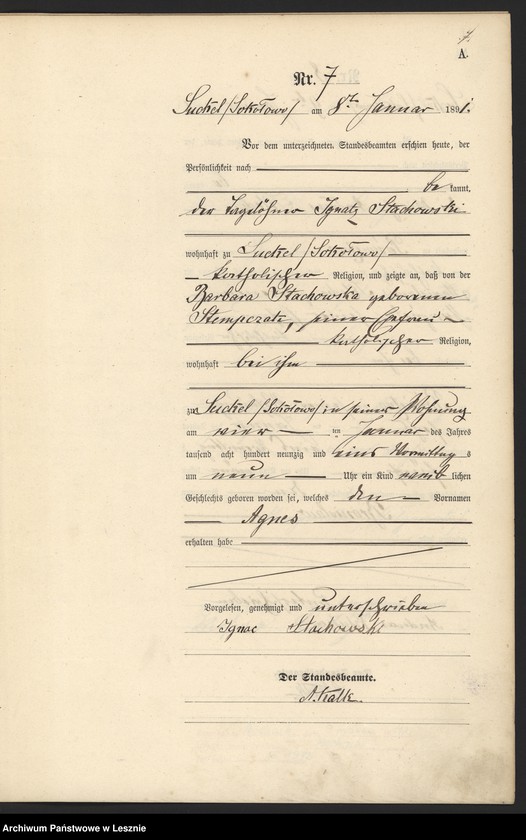 7.
A.
Nr. 7
Suckel /Sokołowo/ am 8ten Januar 1891.
Vor dem unterzeichneten Standesbeamten erschien heute, der
Persönlichkeit nach
be kannt,
der Tagelöhner Ignatz Stachowski
wohnhaft zu Suckel /Sokołowo/
katholischer Religion, und zeigte an, daß von der
Barbara Stachowska geborenen
Stempczak, seiner Ehefrau
katholischer Religion,
wohnhaft bei ihm
zu Suckel /Sokołowo/ in seiner Wohnung
am vier ten Januar des Jahres
tausend acht hundert neunzig und eins Vormittag s
um neun Uhr ein Kind weib lichen
Geschlechts geboren worden sei, welches den Vornamen
Agnes
erhalten habe
Vorgelesen, genehmigt und unterschrieben
Ignac Stachowski
Der Standesbeamte.
Archiwum Państwowe w Lesznie